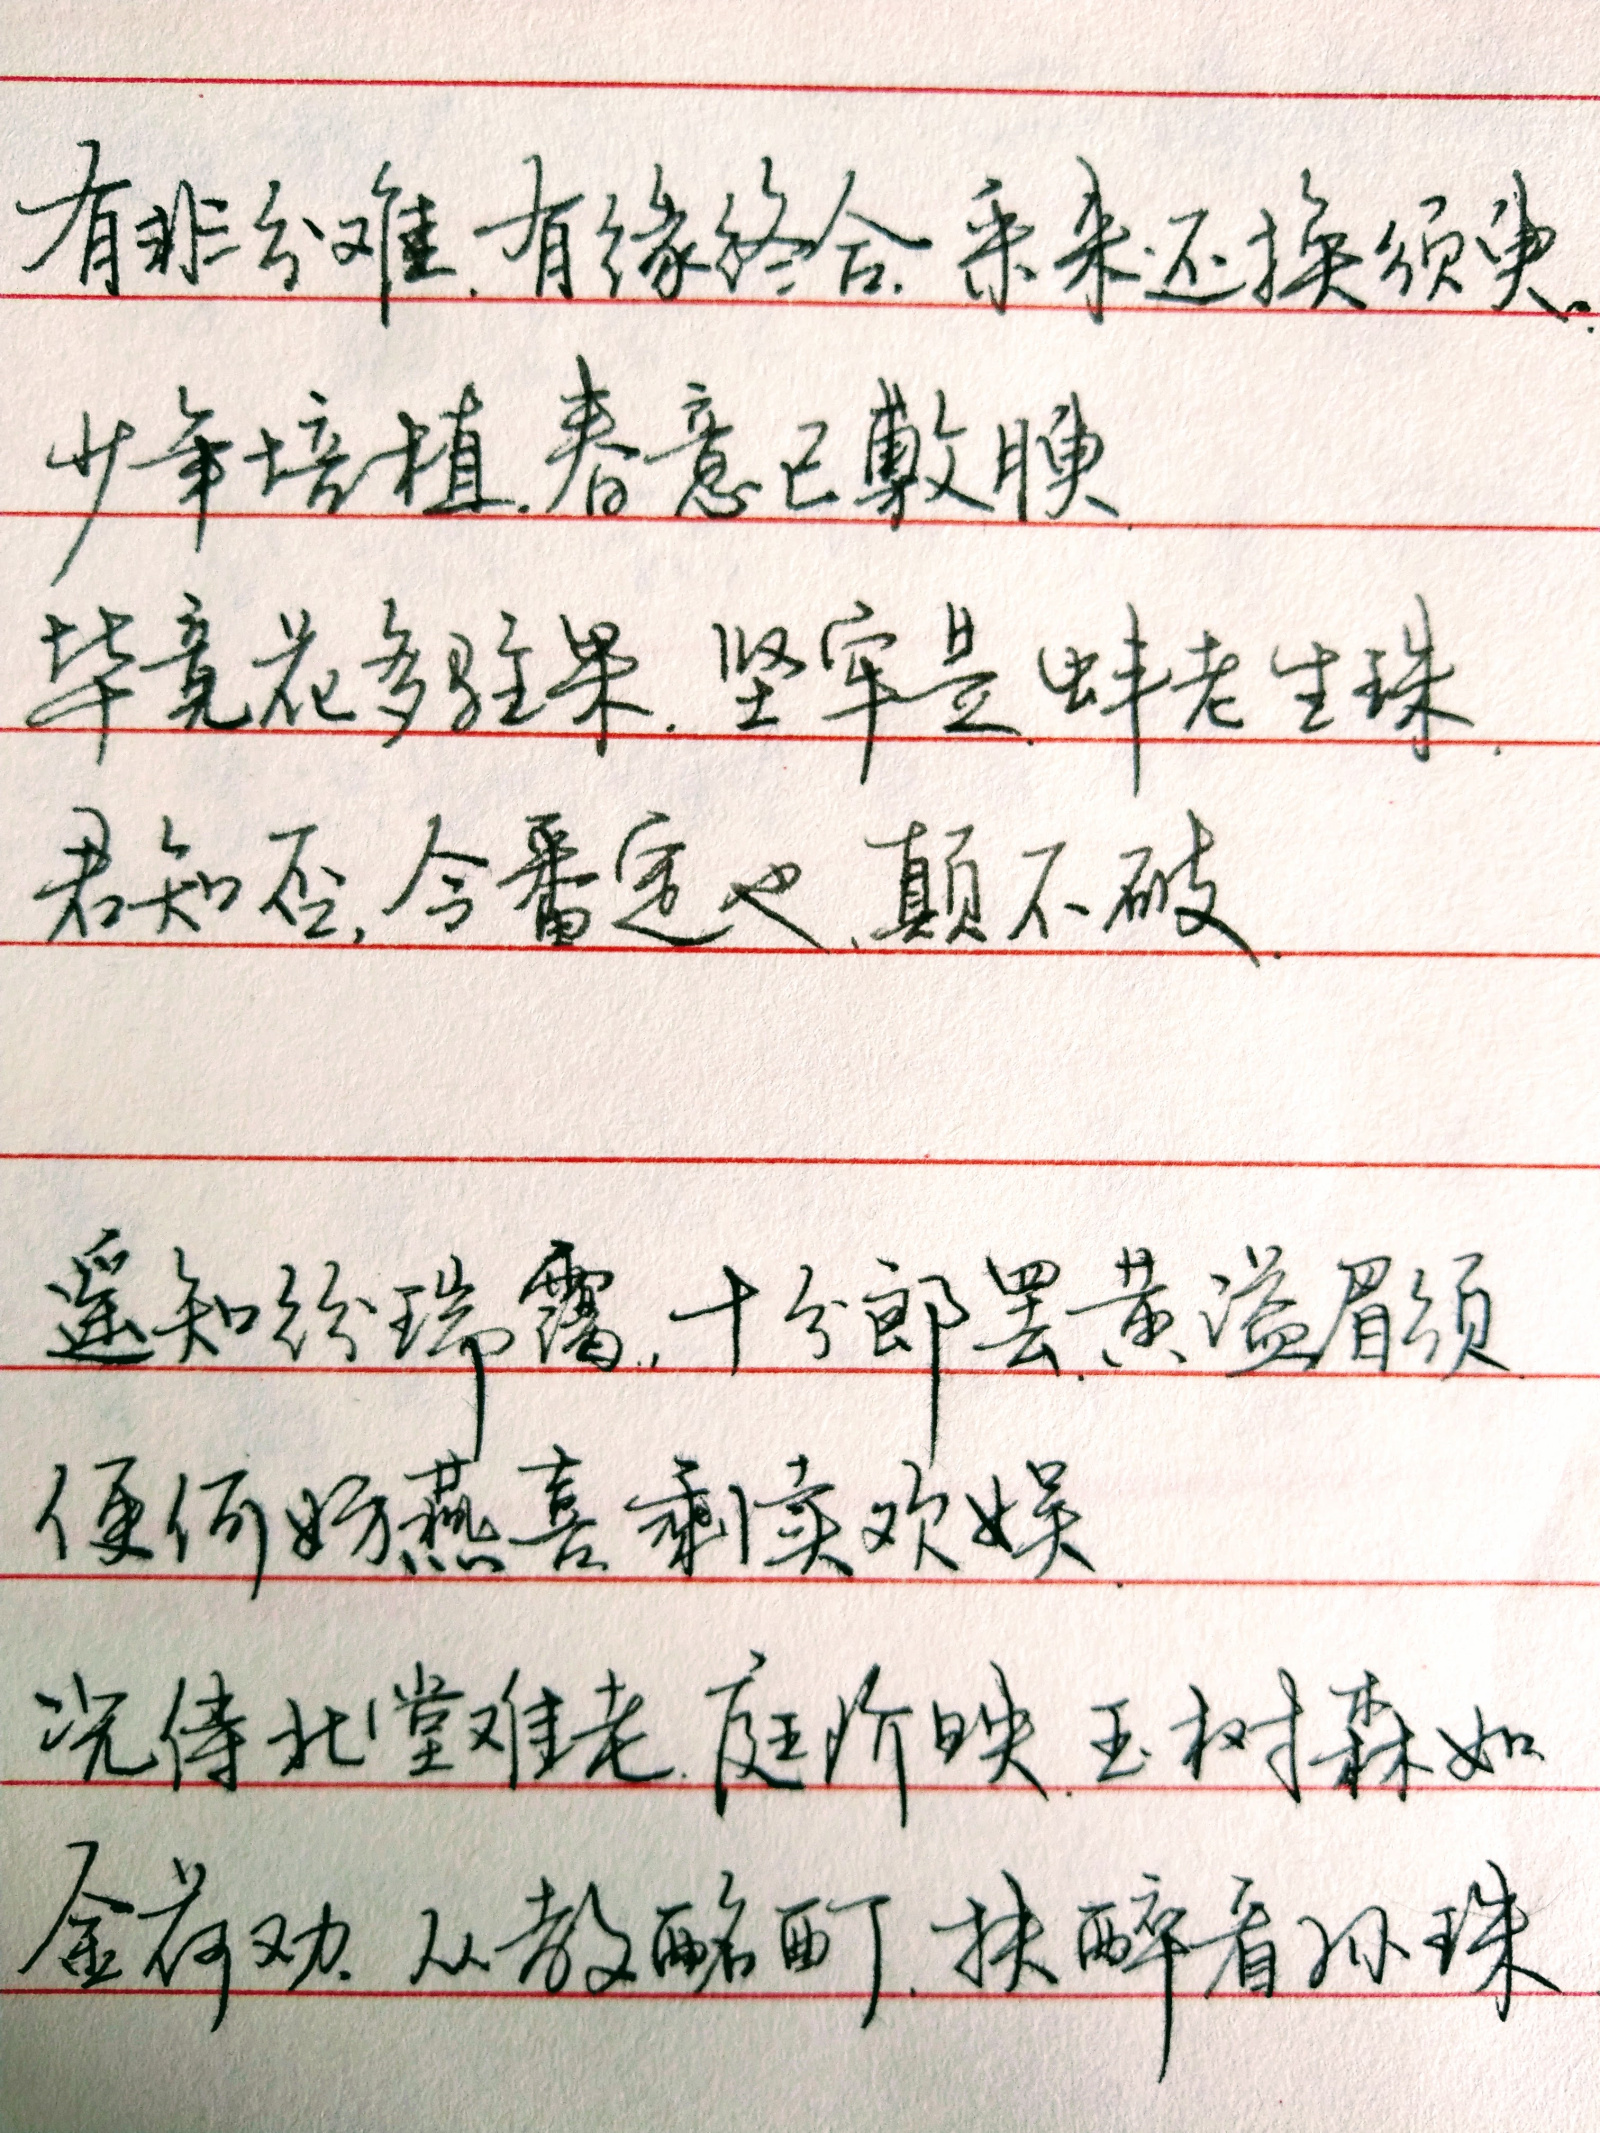 有非分难.有缘终合.采来还换须臾.
少年培植.春意已敷腴.
毕竟花多驻果.坚牢是.蚌老生珠.
君知否,今番定也、颠不破.
遥知纷瑞霭.,十分郎罢.黄溢眉须.
便何妨燕喜剩续欢娱.
况侍北堂难老.庭阶映.玉树森如
金荷劝.从教酩酊.扶醉看孙珠.